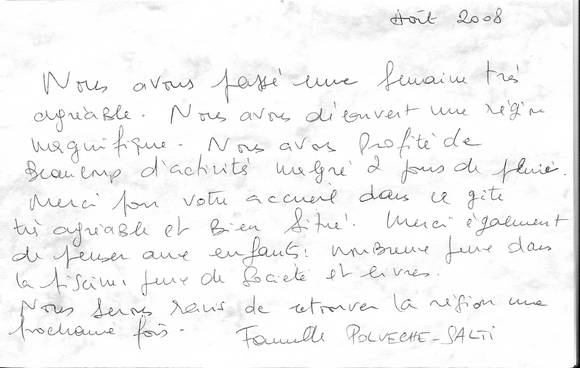 Août 2008
Nous avons passé une semaine très
agréable. Nous avons découvert une région
magnifique. Nous avons profité de
Beaucoup d'activité malgré 2 jours de pluie.
Merci pour votre accueil dans ce gite
très agréable et Bien Situé. Merci également
de penser aux enfants: nombreux jeux dans
la piscine, jeux de Société et livres.
Nous serons ravis de retrouver la région une
prochaine fois. Famille POLVECHE-SALTI